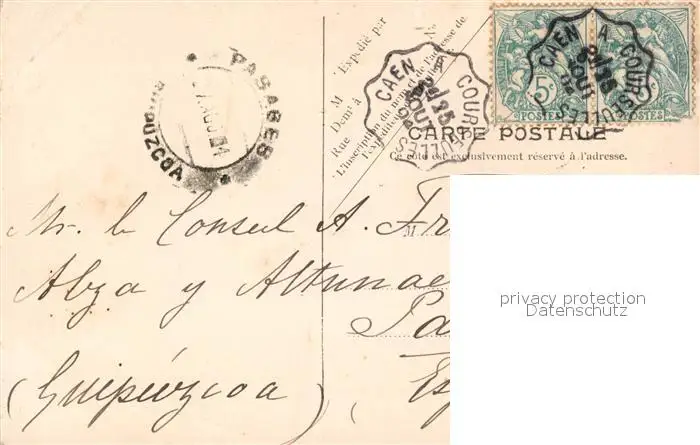 PASAGES
GUIPUZCOA
M
Expédié par
Demt à
Rue
L'inscription du nom et de l'adresse de
l'expéditeur
CAEN A COURSEULLES
25
AOUT
CAEN A COURSEULLES
25
AOUT
5c
POSTES
POSTES
CARTE POSTALE
Ce côté est exclusivement réservé à l'adresse.
M
Mr. le Consul A. Fr
Alza y Altunae
Pa
(Guipúzcoa) Es
privacy protection
Datenschutz